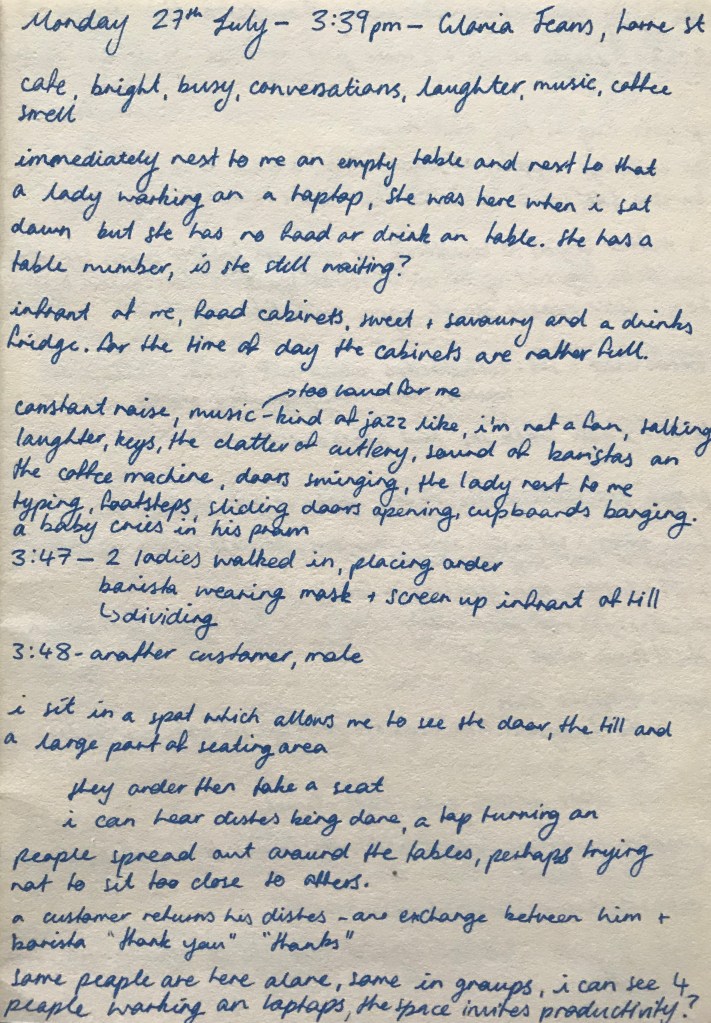 Monday 27th July - 3:39pm - Gloria Jeans, Lorne St
cafe, bright, busy, conversations, laughter, music, coffee
smell
immediately next to me an empty table and next to that
a lady working on a laptop, she was here when i sat
down but she has no food or drink on table. she has a
table number, is she still waiting?
infront of me, food cabinets, sweet + savoury and a drinks
fridge. for the time of day the cabinets are rather full.
→ too loud for me
constant noise, music - kind of jazz like, i'm not a fan, talking
laughter, keys, the clatter of cutlery, sound of baristas on
the coffee machine, doors swinging, the lady next to me
typing, footsteps, sliding doors opening, cupboards banging.
a baby cries in his pram
3:47 - 2 ladies walked in, placing order
barista wearing mask + screen up infront of till
↳ dividing
3:48 - another customer, male
i sit in a spot which allows me to see the door, the till and
a large part of seating area
they order then take a seat
i can hear dishes being done, a tap turning on
people spread out around the tables, perhaps trying
not to sit too close to others.
a customer returns his dishes - an exchange between him +
barista "thank you" "thanks"
some people are here alone, some in groups, i can see 4
people working on laptops, the space invites productivity?